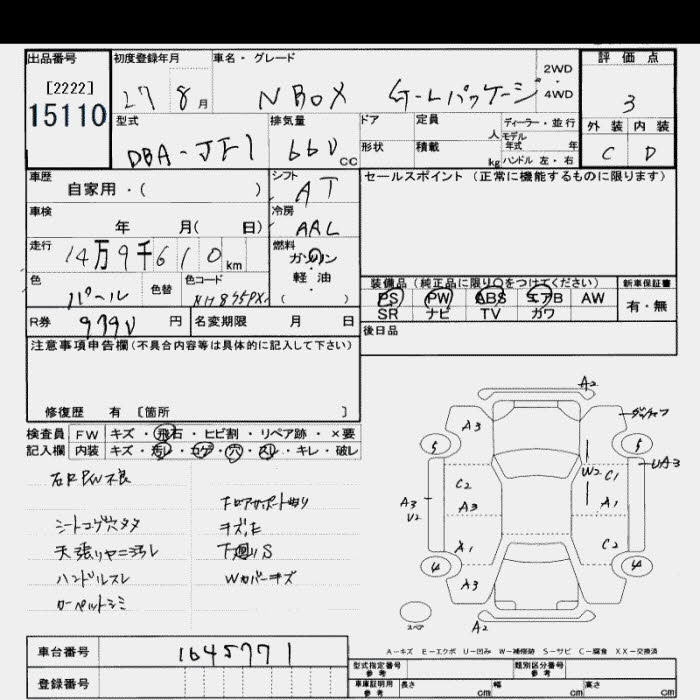 出品番号
[2222]
15110
初度登録年月
27 8 月
車名・グレード
N BOX G-Lパッケージ
2WD
・
4WD
評価点
3
外装 内装
C D
型式
DBA-JF1
排気量
660 cc
ドア
定員
人
ディーラー・並行
モデル
年式 年
形状
積載
kg
ハンドル 左・右
車歴
自家用・( )
シフト
AT
セールスポイント (正常に機能するものに限ります)
車検
年 月( 日)
冷房
AAC
走行
14万9千610 km
燃料
ガソリン
・
軽油
( )
色
パール
色替
色コード
装備品(純正品に限り○をつけてください)
PS PW ABS エアB AW
SR ナビ TV カワ
新車保証書
有・無
R券
9790 円
名変期限 月 日
後日品
注意事項申告欄(不具合内容等は具体的に記入して下さい)
修復歴 有 [箇所 ]
検査員
記入欄
FW キズ・飛石・ヒビ割・リペア跡・×要
内装 キズ・汚レ・コゲ・穴・スレ・キレ・破レ
右R P/W不良
シートコゲ穴タタ
天張リヤニ汚レ
ハンドルスレ
カーペットシミ
キズ、E
下廻リS
Wカバーキズ
A2
A3
5
5
UA3
W2
C1
C2
A3
A1
A3
U2
A1
C2
4
4
A3
スペア
A2
A-キズ E-エクボ U-凹み W-補修跡 S-サビ C-腐食 XX-交換済
車台番号
1645771
登録番号
型式指定番号
参考
類別区分番号
参考
車庫証明用
参考
長さ cm
幅 cm
高さ cm